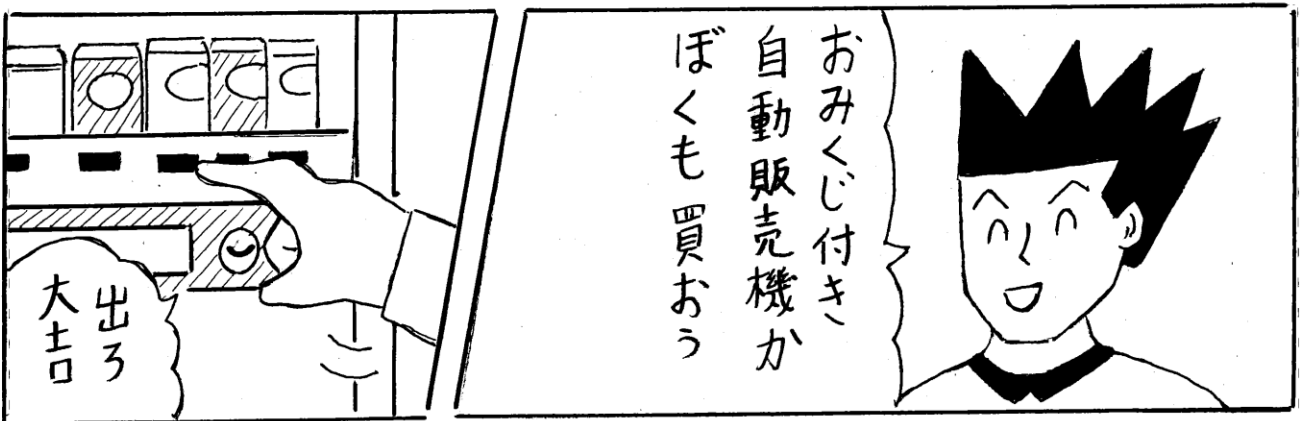 おみくじ付き
自動販売機か
ぼくも買おう
出ろ
大吉